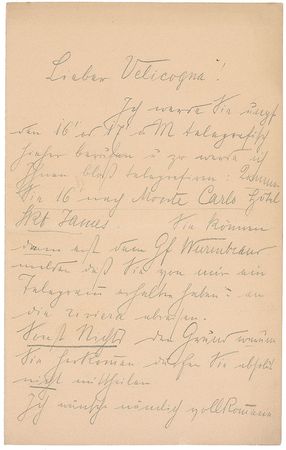 Lieber Velicogna!
Ich werde Sie
den 16' 17' d M telegrafisch
hieher berufen u zwar werde ich
Ihnen bloß telegrafiren: Kommen
Sie 16 nach Monte Carlo Hôtel
St James Sie können
dann erst dem Gf Wurmbrand
melden daß Sie von mir ein
Telegram erhalten haben an
die Riviera abreisen.
Sonst Nichts den Grund warum
Sie herkommen dürfen Sie absolut
nicht mittheilen
Ich wünsche nämlich vollkommen